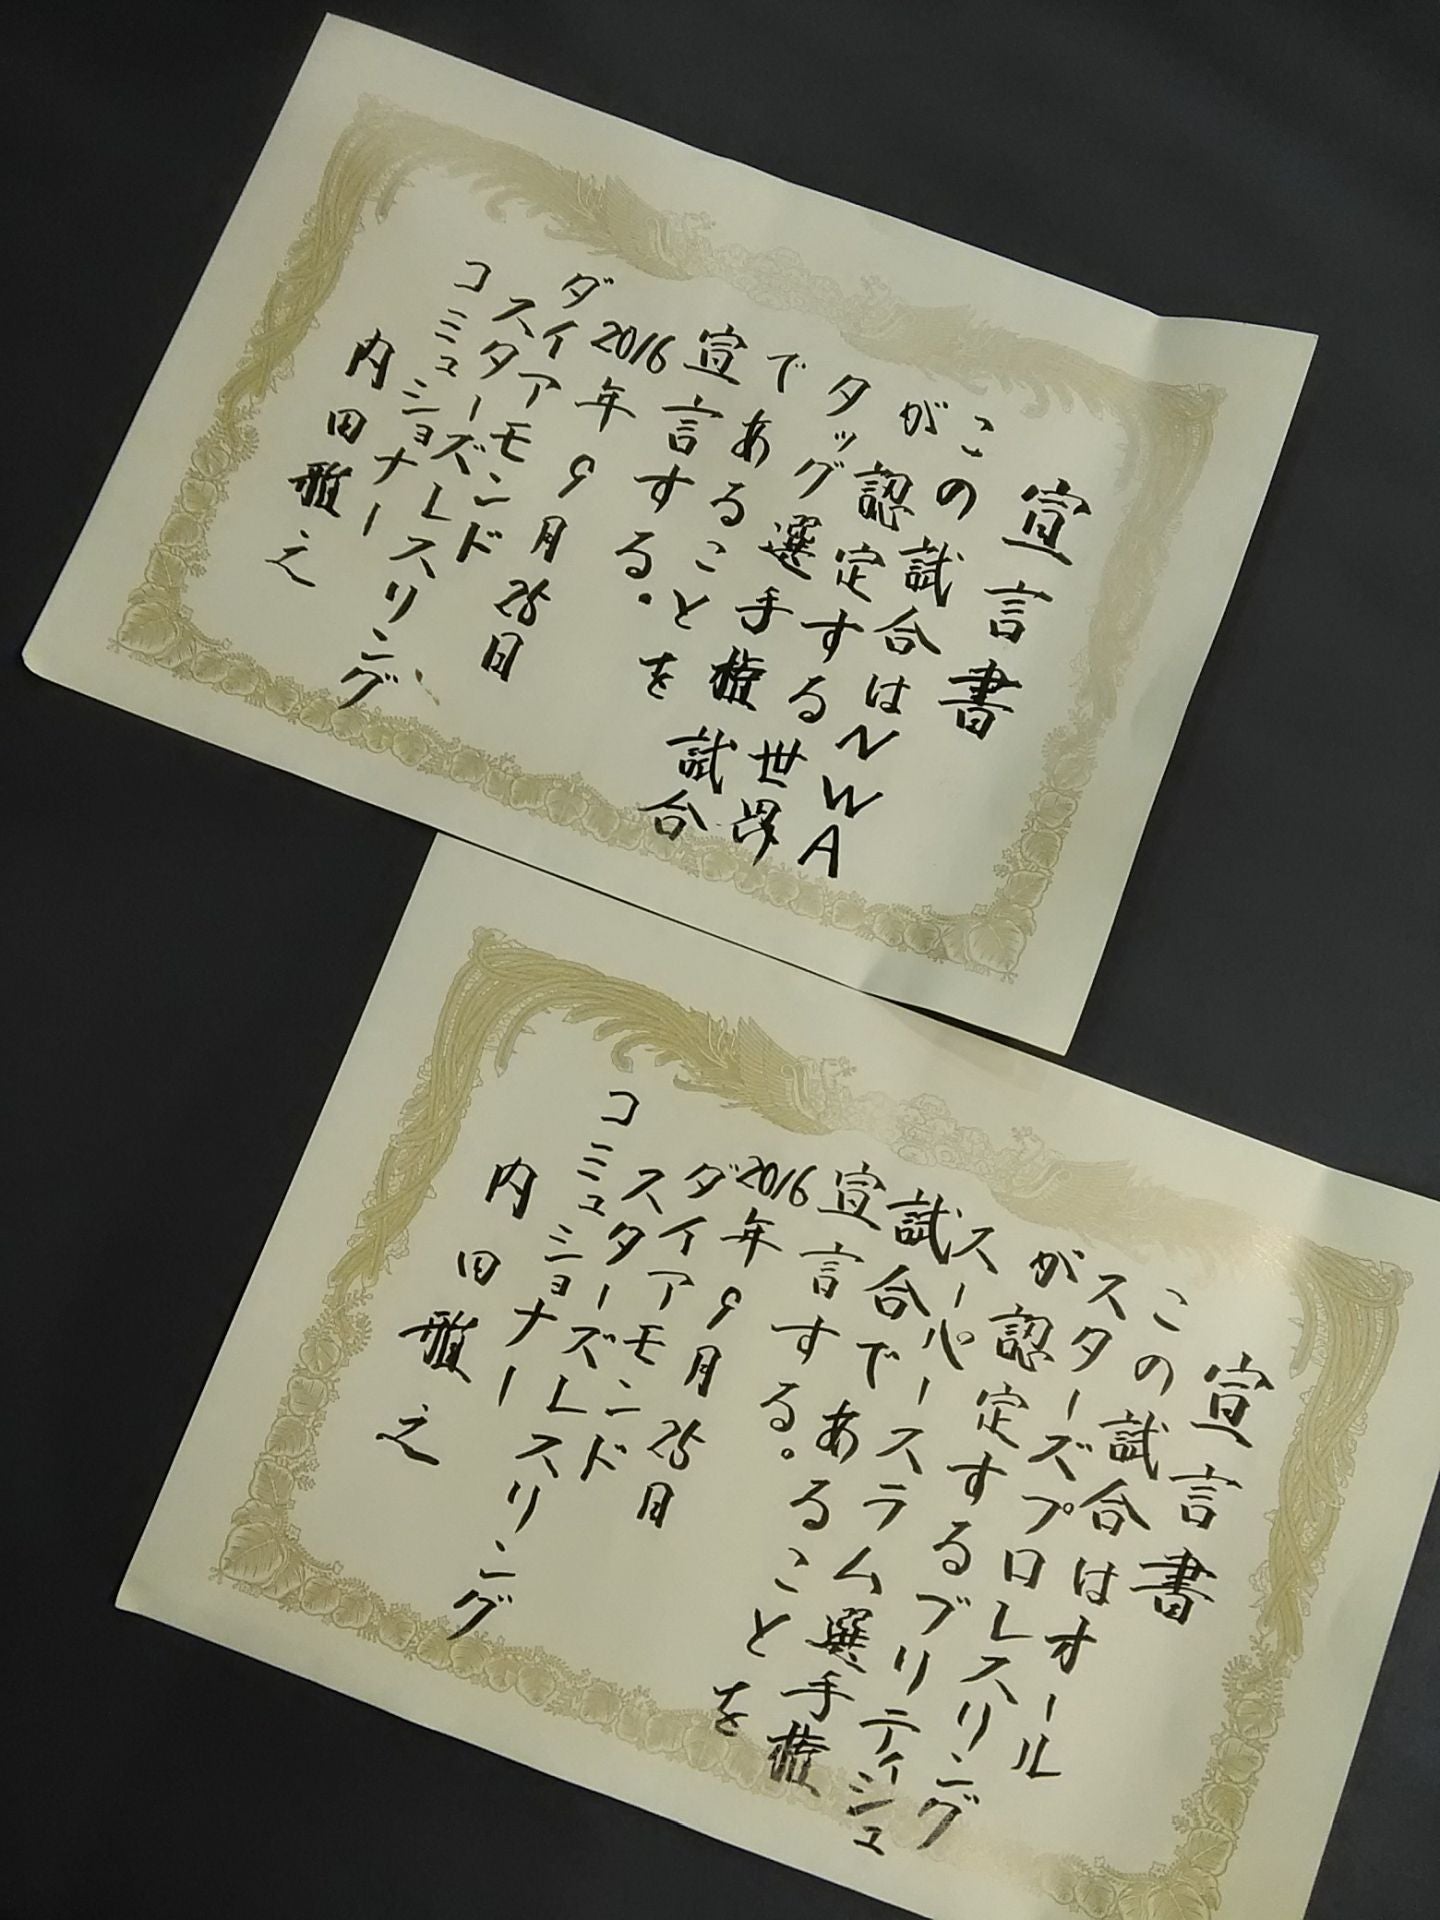 宣言書
この試合はNWA
が認定する世界
タッグ選手権試合
であることを
宣言する。
2016年9月25日
ダイアモンド
スターズレスリング
コミュショナー
内田雅之
宣言書
この試合はオール
スターズプロレスリング
が認定するブリティシュ
スーパースラム選手権
試合であることを
宣言する。
2016年9月25日
ダイアモンド
スターズレスリング
コミュショナー
内田雅之